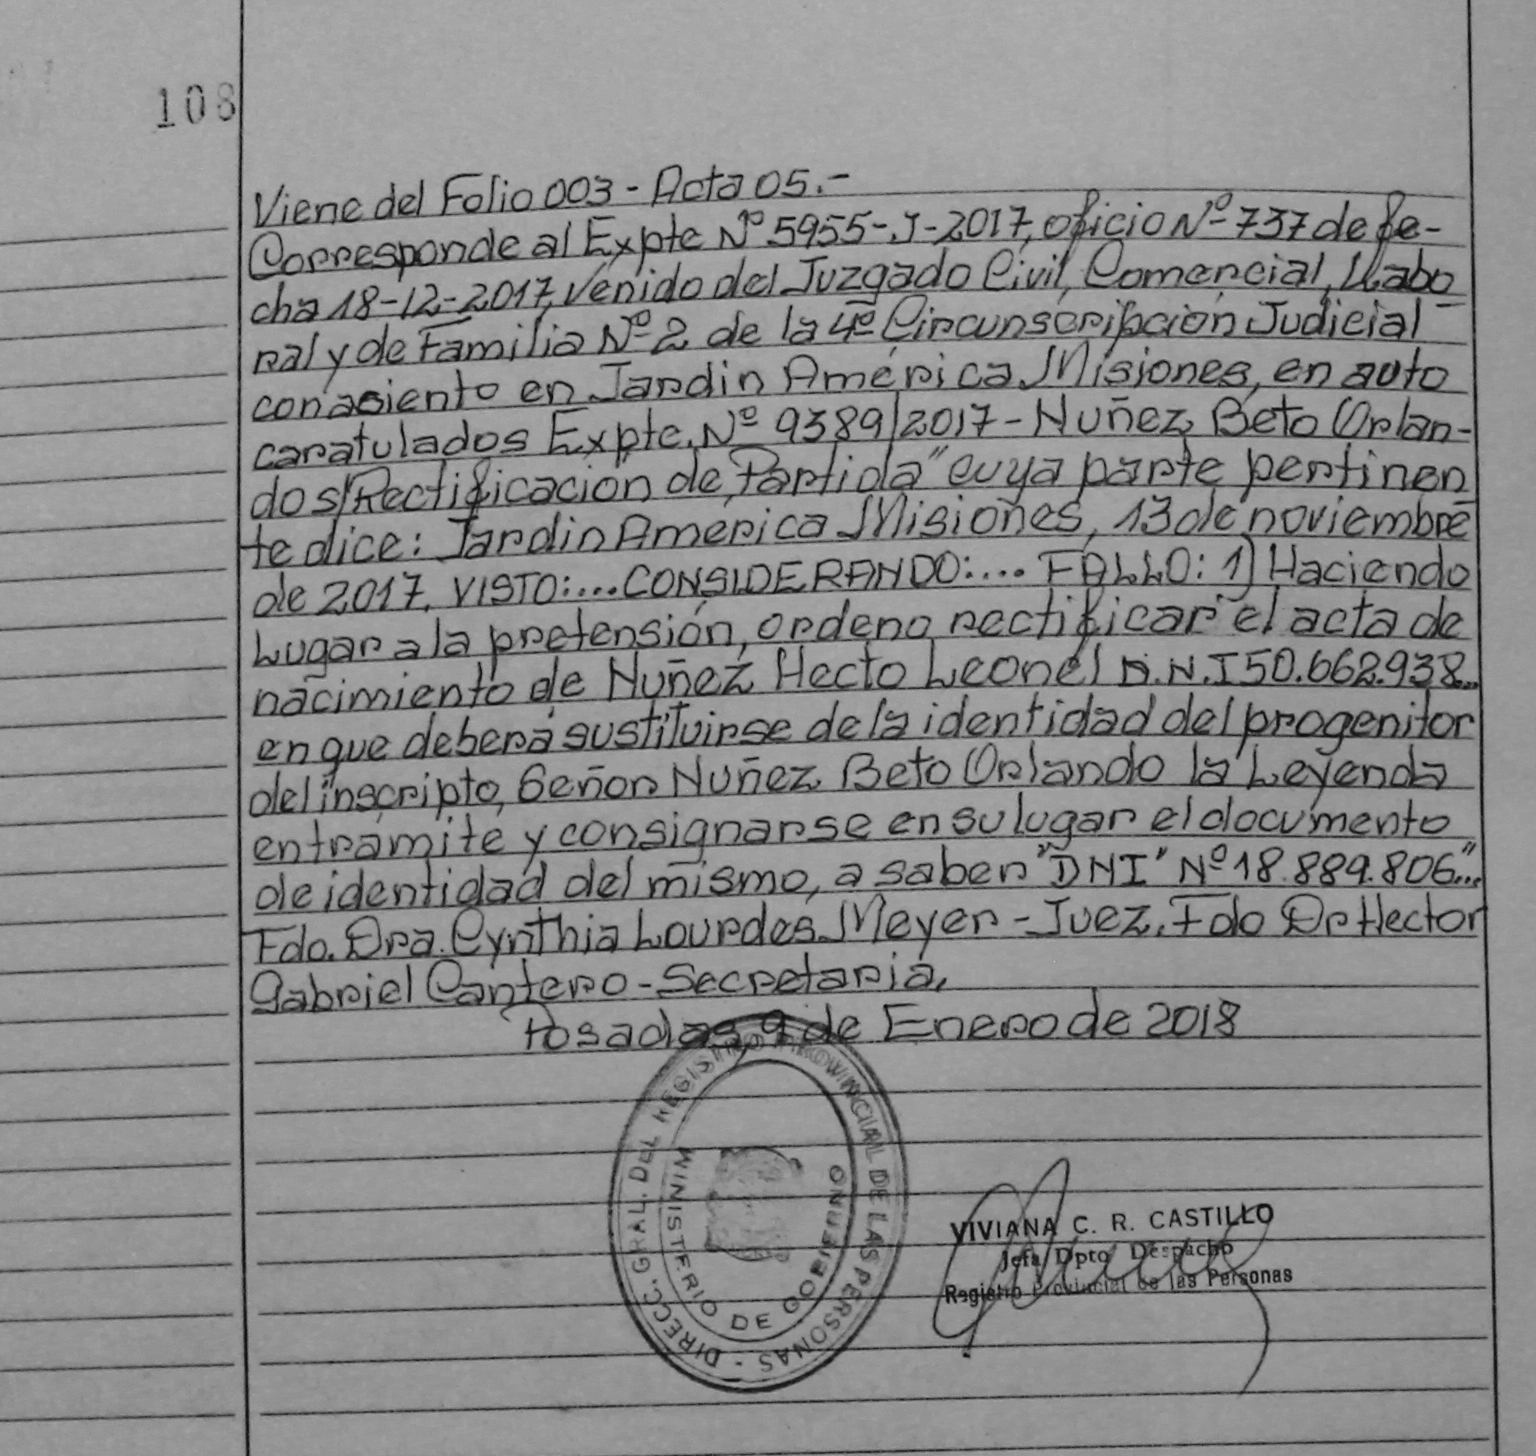 108
Viene del Folio 003 - Acta 05.-
Corresponde al Expte Nº 5955-J-2017, oficio Nº 737 de fe-
cha 18-12-2017, venido del Juzgado Civil, Comercial, Labo
ral y de Familia Nº 2 de la 4º Circunscripción Judicial
con asiento en Jardin América Misiones, en auto
caratulados Expte. Nº 9389/2017 - Nuñez Beto Orlan-
do s/Rectificación de Partida" cuya parte pertinen
te dice: Jardin America Misiones, 13 de noviembre
de 2017. VISTO:... CONSIDERANDO:.... FALLO: 1) Haciendo
Lugar a la pretensión, ordeno rectificar el acta de
nacimiento de Nuñez Hecto Leonel D.N.I 50.662.938..
en que deberá sustituirse de la identidad del progenitor
del inscripto, Señor Nuñez Beto Orlando la Leyenda
en tramite y consignarse en su lugar el documento
de identidad del mismo, a saber "DNI" Nº 18.889.806"...
Fdo. Dra. Cynthia Lourdes Meyer - Juez. Fdo Dr Hector
Gabriel Cantero - Secretaria.
Posadas, 9 de Enero de 2018
DIRECC. GRAL. DEL REGISTRO PROVINCIAL DE LAS PERSONAS -
MINISTERIO DE GOBIERNO
VIVIANA C. R. CASTILLO
Jefa Dpto Despacho
Registro Provincial de las Personas